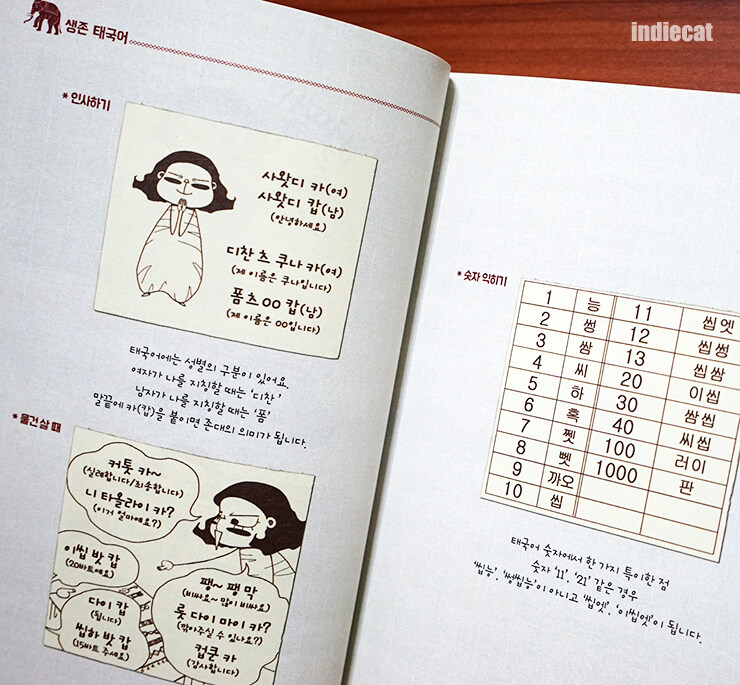 생존 태국어
indiecat
* 인사하기
사왓디 카(여)
사왓디 캅(남)
(안녕하세요)
디찬 츠 쿠나 카(여)
(제 이름은 쿠나입니다)
폼 츠 OO 캅(남)
(제 이름은 OO입니다)
태국어에는 성별의 구분이 있어요.
여자가 나를 지칭할 때는 '디찬'
남자가 나를 지칭할 때는 '폼'
말끝에 카(캅)을 붙이면 존대의 의미가 됩니다.
* 물건 살 때
커톳 카~
(실례합니다/죄송합니다)
니 타올라이 카?
(이거 얼마예요?)
이씹 밧 캅
(20바트예요)
팽~ 팽 막
(비싸요~ 많이 비싸요)
롯 다이 마이 카?
(깎아주실 수 있나요?)
컵쿤 카
(감사합니다)
다이 캅
(됩니다)
씹하 밧 캅
(15바트 주세요)
* 숫자 익히기
1 능 11 씹엣
2 썽 12 씹썽
3 쌈 13 씹쌈
4 씨 20 이씹
5 하 30 쌈씹
6 혹 40 씨씹
7 쩻 100 러이
8 뺏 1000 판
9 까오
10 씹
태국어 숫자에서 한 가지 특이한 점
숫자 '11', '21' 같은 경우
'씹능', '썽씹능'이 아니고 '씹엣', '이씹엣'이 됩니다.